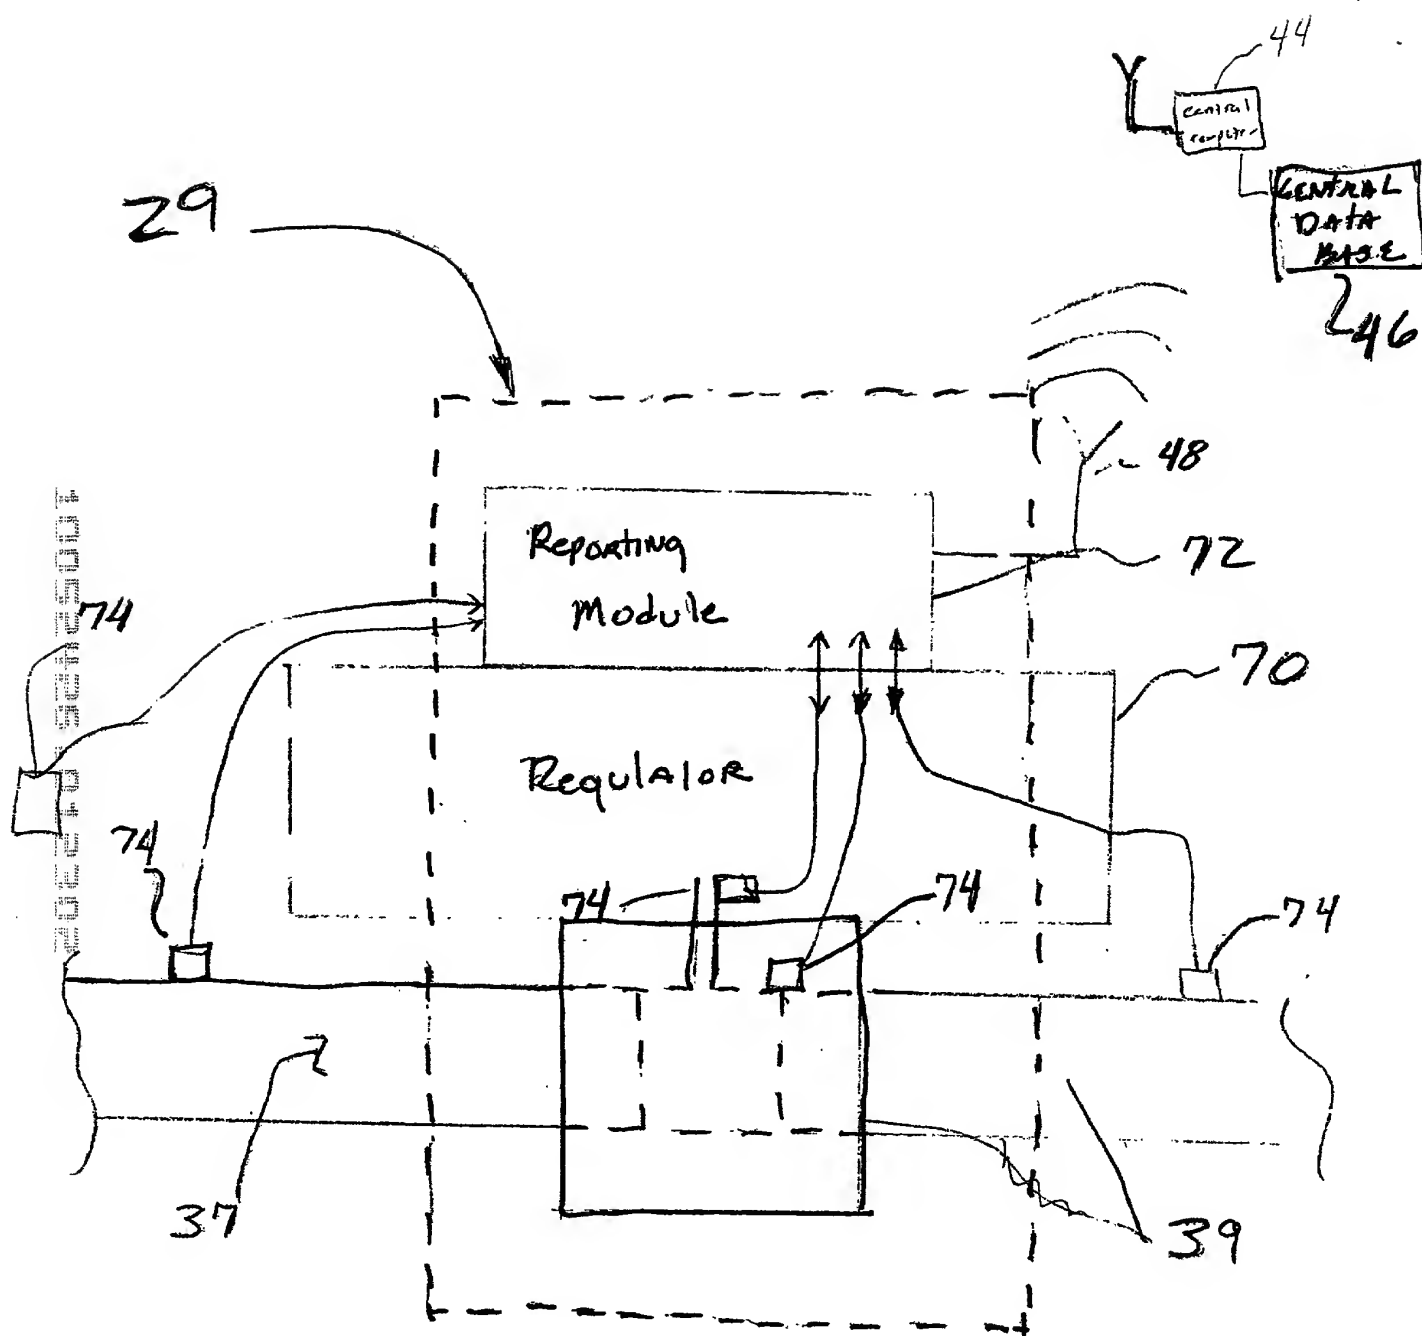 44
central
computer
CENTRAL
DATA
BASE
46
29
48
Reporting
Module
72
74
70
Regulator
74
74
74
74
37
39